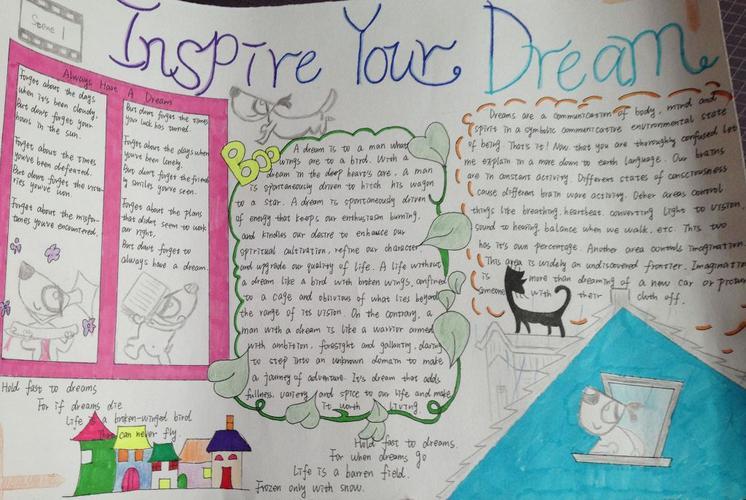 Scene 1
Inspire Your Dream
Always Have A Dream
Forget about the days
when it's been cloudy.
But don't forget your
hours in the sun.
Forget about the times
you've been defeated.
But don't forget the victo-
ries you've won.
Forget about the misfor-
tunes you've encountered.
But don't forget the times
your luck has turned.
Forget about the days when
you've been lonely.
But don't forget the friend-
ly smiles you've seen.
Forget about the plans
that didn't seem to work
out right.
But don't forget to
always have a dream.
Boo
A dream is to a man what
wings are to a bird. With a
dream in the deep heart's core, a man
is spontaneously driven to hitch his wagon
to a star. A dream is spontaneously driven
of energy that keeps our enthusiasm burning,
and kindles our desire to enhance our
spiritual cultivation, refine our character
and upgrade our quality of life. A life without
a dream like a bird with broken wings, confined
to a cage and oblivious of what lies beyond
the range of its vision. On the contrary, a
man with a dream is like a warrior armed
with ambition, foresight and gallantry, daring
to step into an unknown domain to make
a journey of adventure. It's dream that adds
fullness, variety and spice to our life and make
it worth living
Dreams are a communication of body, mind and
spirit in a symbolic communicative environmental state
of being. That's it! Now that you are thoroughly confused let
me explain in a more down to earth language. Our brains
are in constant activity. Different states of consciousness
cause different brain wave activity. Other areas control
things like breathing, heartbeat, converting light to vision,
sound to hearing, balance when we walk, etc. This two
has it's own percentage. Another area controls imagination.
This area is widely an undiscovered frontier. Imagination
is more than dreaming of a new car or
someone with their cloth off.
Hold fast to dreams
For if dreams die
Life is a broken-winged bird
That can never fly.
Hold fast to dreams.
For when dreams go
Life is a barren field.
Frozen only with snow.